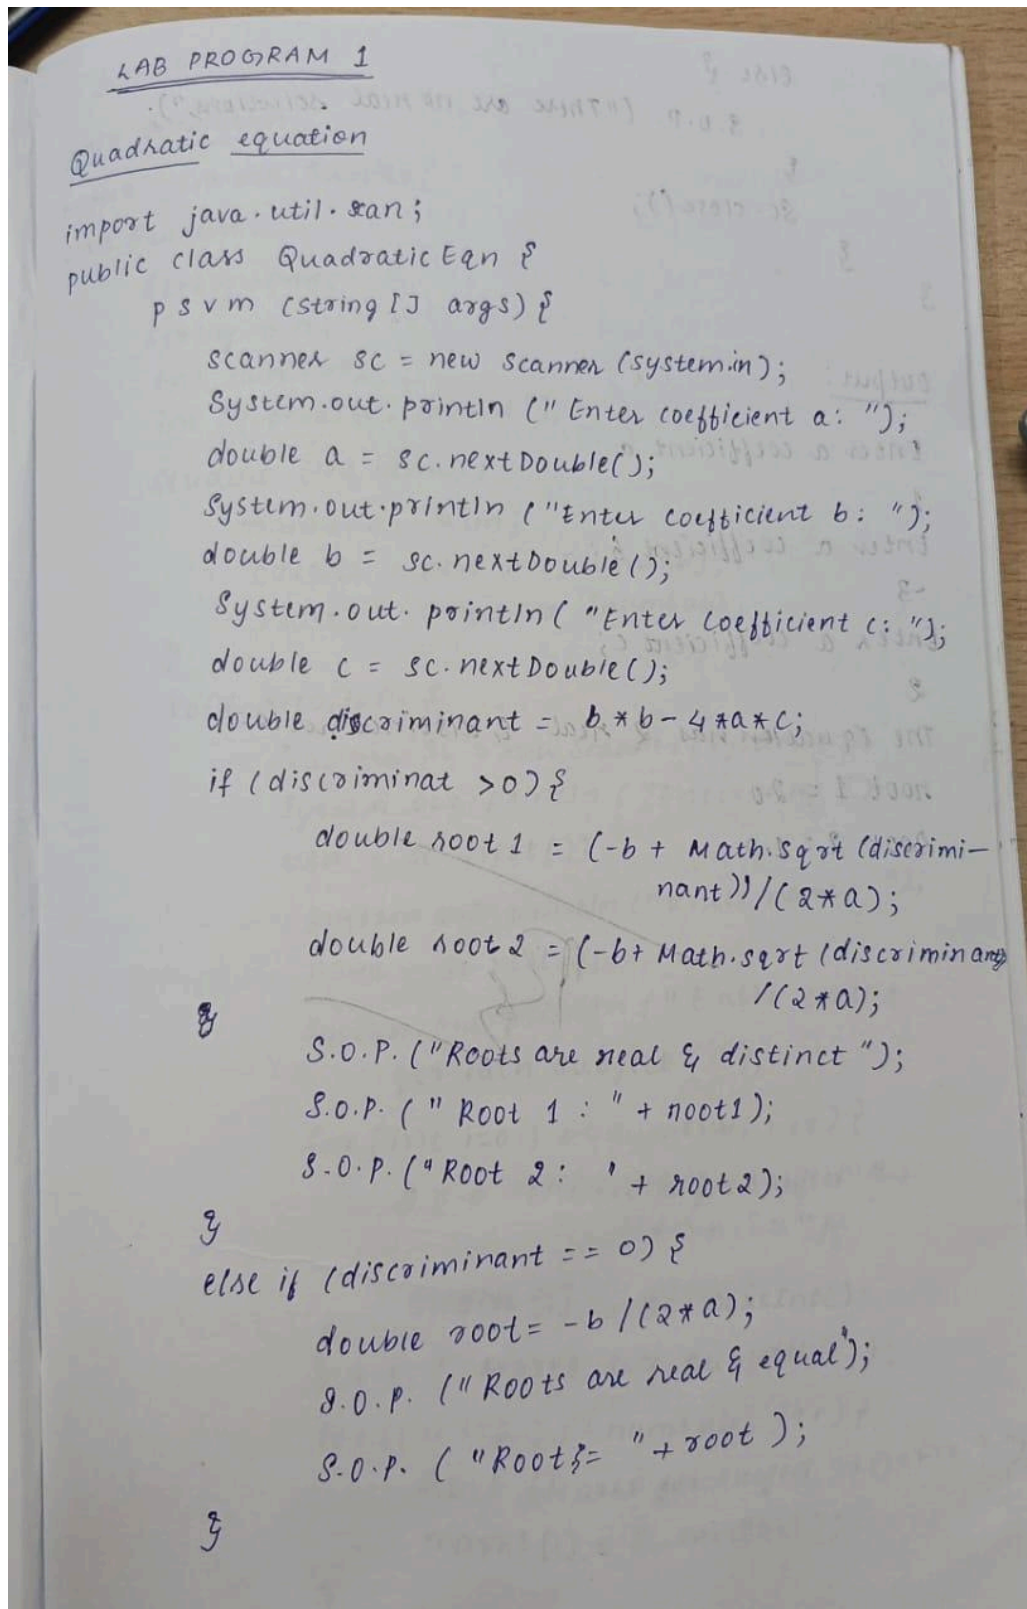 LAB PROGRAM 1
Quadratic equation
import java.util.scan;
public class QuadraticEqn {
p s v m (string [] args) {
scanner sc = new scanner (system.in);
System.out.println (" Enter coefficient a: ");
double a = sc.nextDouble();
System.out.println ("Enter coefficient b: ");
double b = sc.nextDouble();
System.out.println ( "Enter coefficient c: ");
double c = sc.nextDouble();
double discriminant = b*b-4*a*c;
if (discriminat >0) {
double root 1 = (-b + Math.sqrt (discrimi-
nant))/(2*a);
double root 2 = (-b+ Math.sqrt (discriminant)
/(2*a);
}
S.O.P. ("Roots are real & distinct ");
S.O.P. (" Root 1 : " + root1);
S.O.P. ("Root 2 : ' + root2);
}
else if (discriminant == 0) {
double root= -b/(2*a);
S.O.P. (" Roots are real & equal");
S.O.P. ( "Roots= "+root );
}